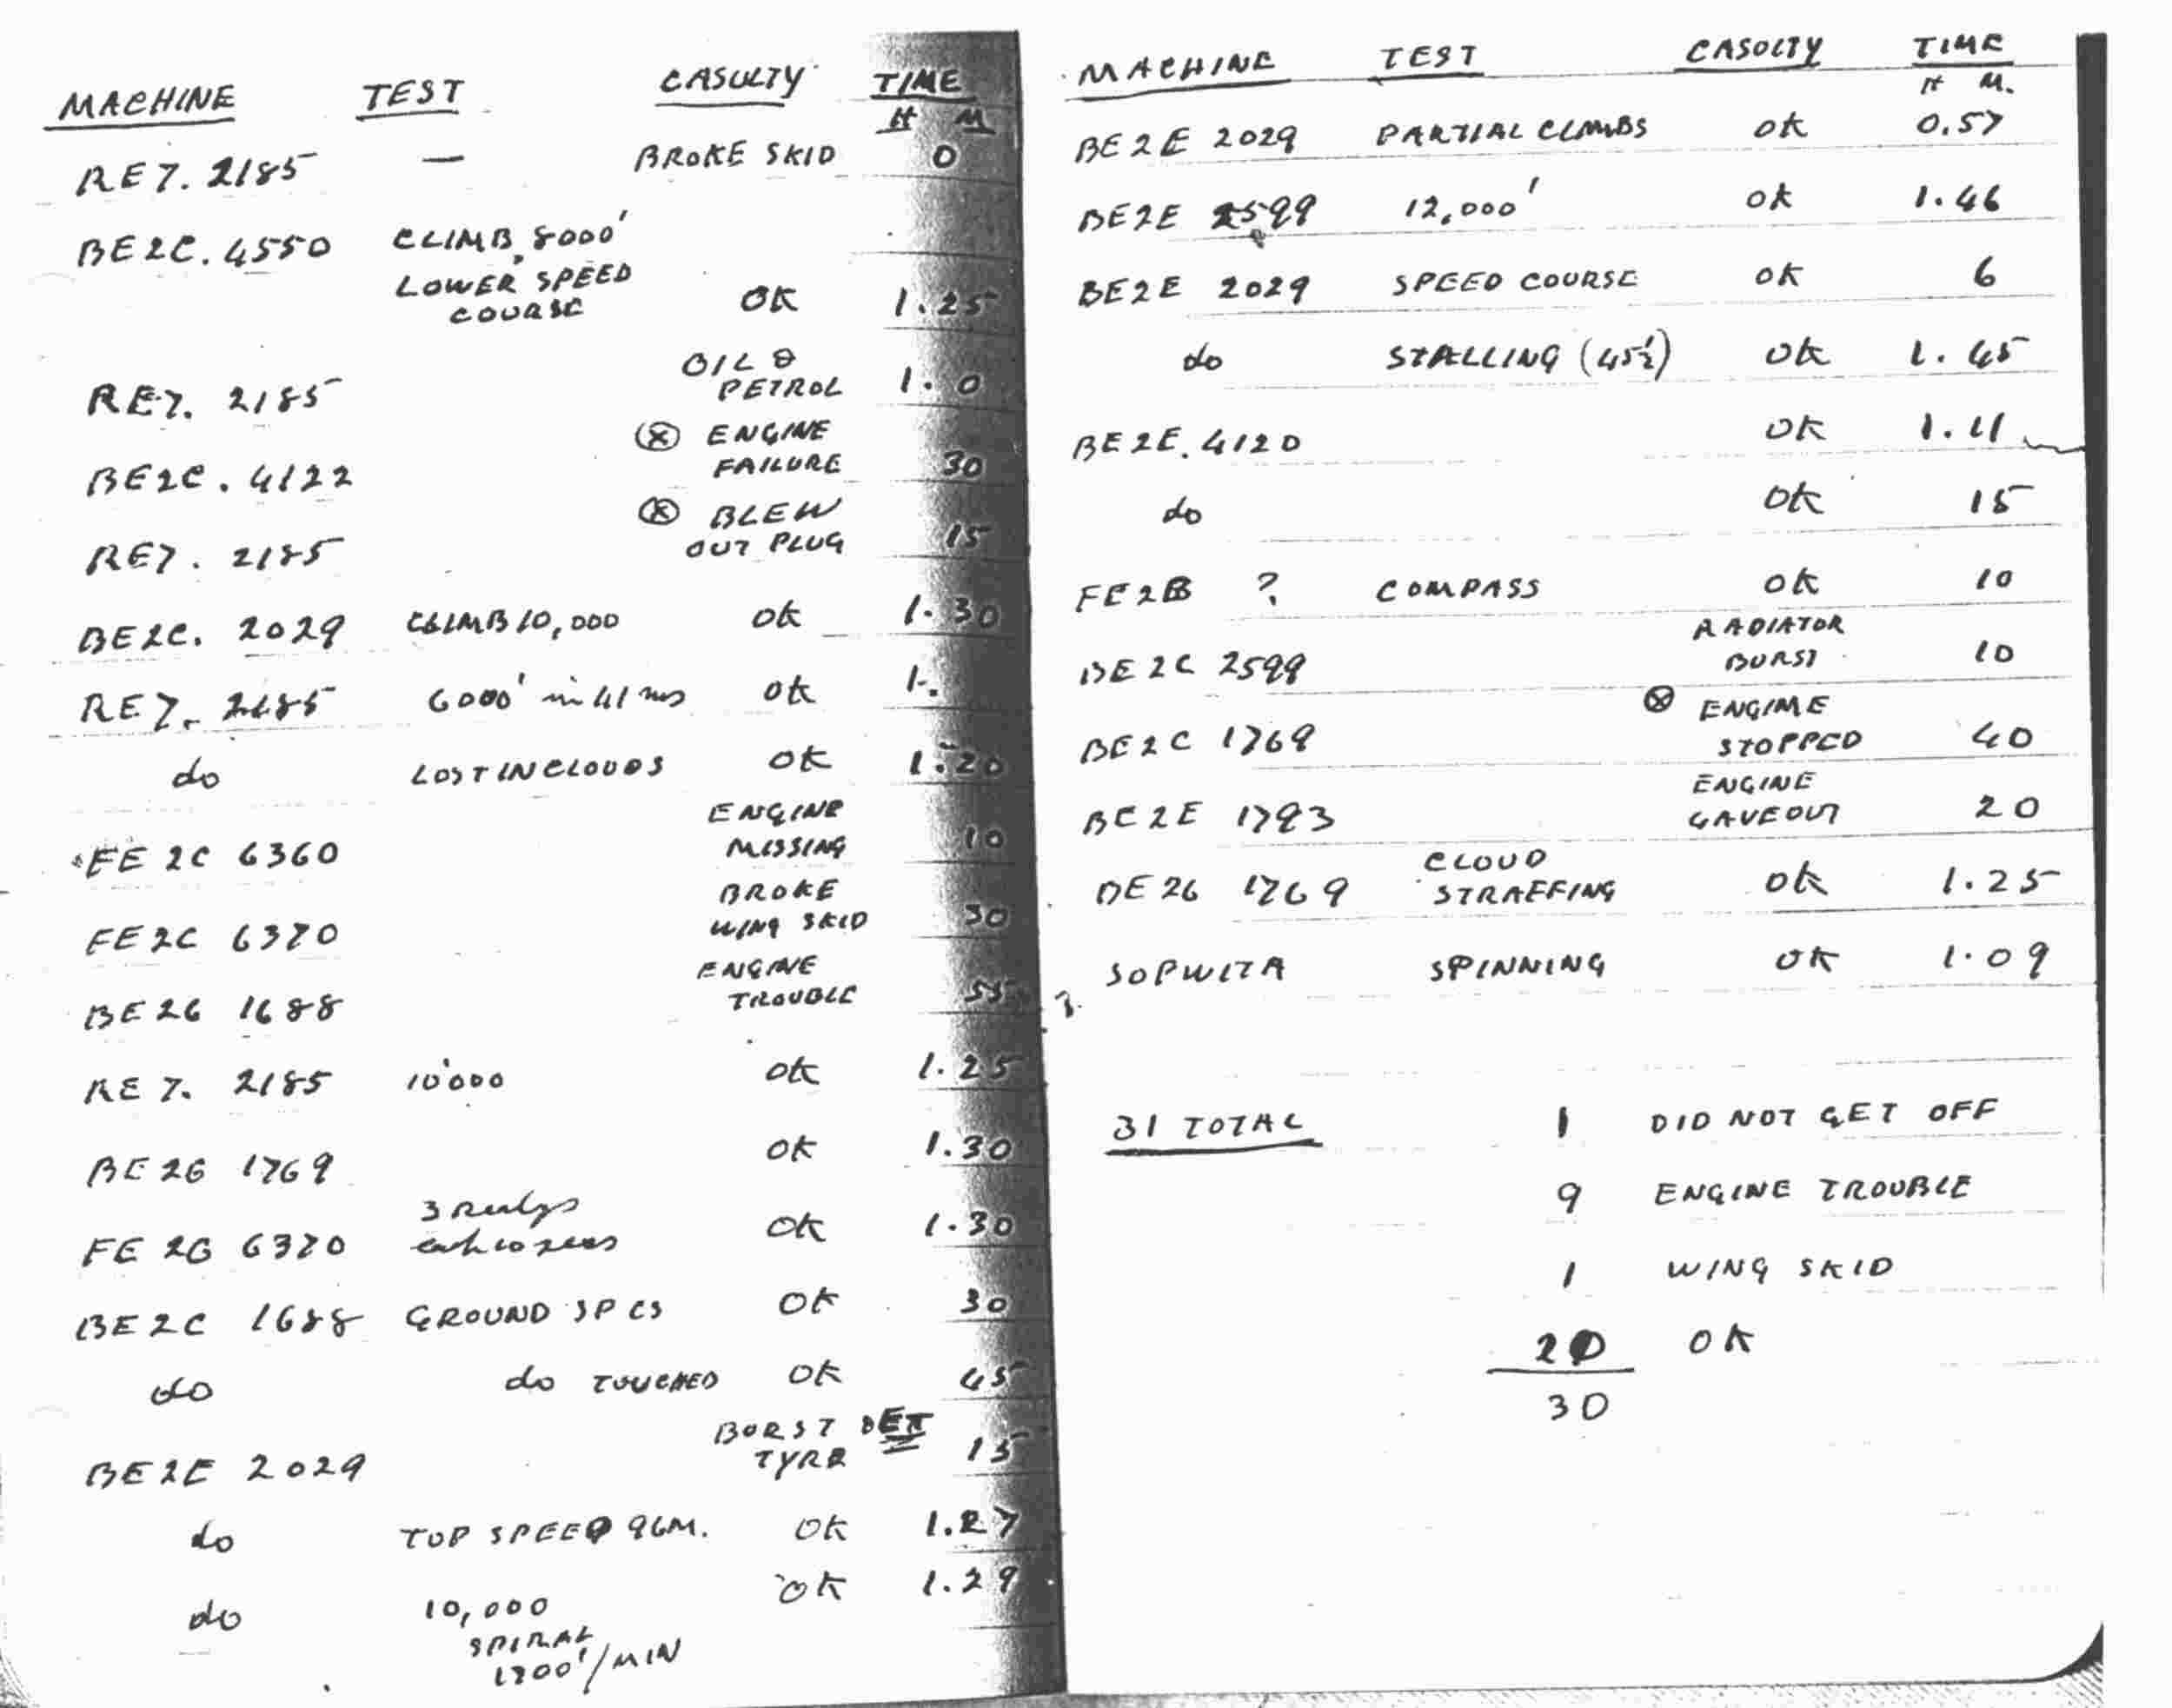 MACHINE TEST CASULTY TIME
H M
RE7. 2185 — BROKE SKID 0
BE2C. 4550 CLIMB, 8000'
LOWER SPEED
COURSE OK 1.25
OIL &
RE7. 2185 PETROL 1.0
⊗ ENGINE
BE2C. 4122 FAILURE 30
⊗ BLEW
RE7. 2185 OUT PLUG 15
BE2C. 2029 CLIMB 10,000 OK 1.30
RE7. 2185 6000' in 41 OK 1.
do LOST IN CLOUDS OK 1.20
ENGINE
FE 2C 6360 MISSING 10
BROKE
FE 2C 6370 WING SKID 30
ENGINE
BE 2G 1688 TROUBLE 55
RE 7. 2185 10'000 OK 1.25
BE 2G 1769 OK 1.30
3
FE 2G 6370 OK 1.30
BE 2C 1688 GROUND SPCS OK 30
do do TOUCHED OK 45
BURST
BE2E 2029 TYRE 15
do TOP SPEED 96M. OK 1.27
do 10,000 OK 1.29
SPIRAL
1700'/MIN
MACHINE TEST CASOLTY TIME
H M.
BE2E 2029 PARTIAL CLIMBS OK 0.57
BE2E 2599 12,000' OK 1.46
BE2E 2029 SPEED COURSE OK 6
do STALLING (45½) OK 1.45
BE2E. 4120 OK 1.11
do OK 15
FE2B ? COMPASS OK 10
RADIATOR
BE 2C 2599 BURST 10
⊗ ENGINE
BE2C 1769 STOPPED 40
ENGINE
BE2E 1793 GAVE OUT 20
CLOUD
BE 2G 1769 STRAFFING OK 1.25
SOPWITH SPINNING OK 1.09
31 TOTAL 1 DID NOT GET OFF
9 ENGINE TROUBLE
1 WING SKID
20 OK
30